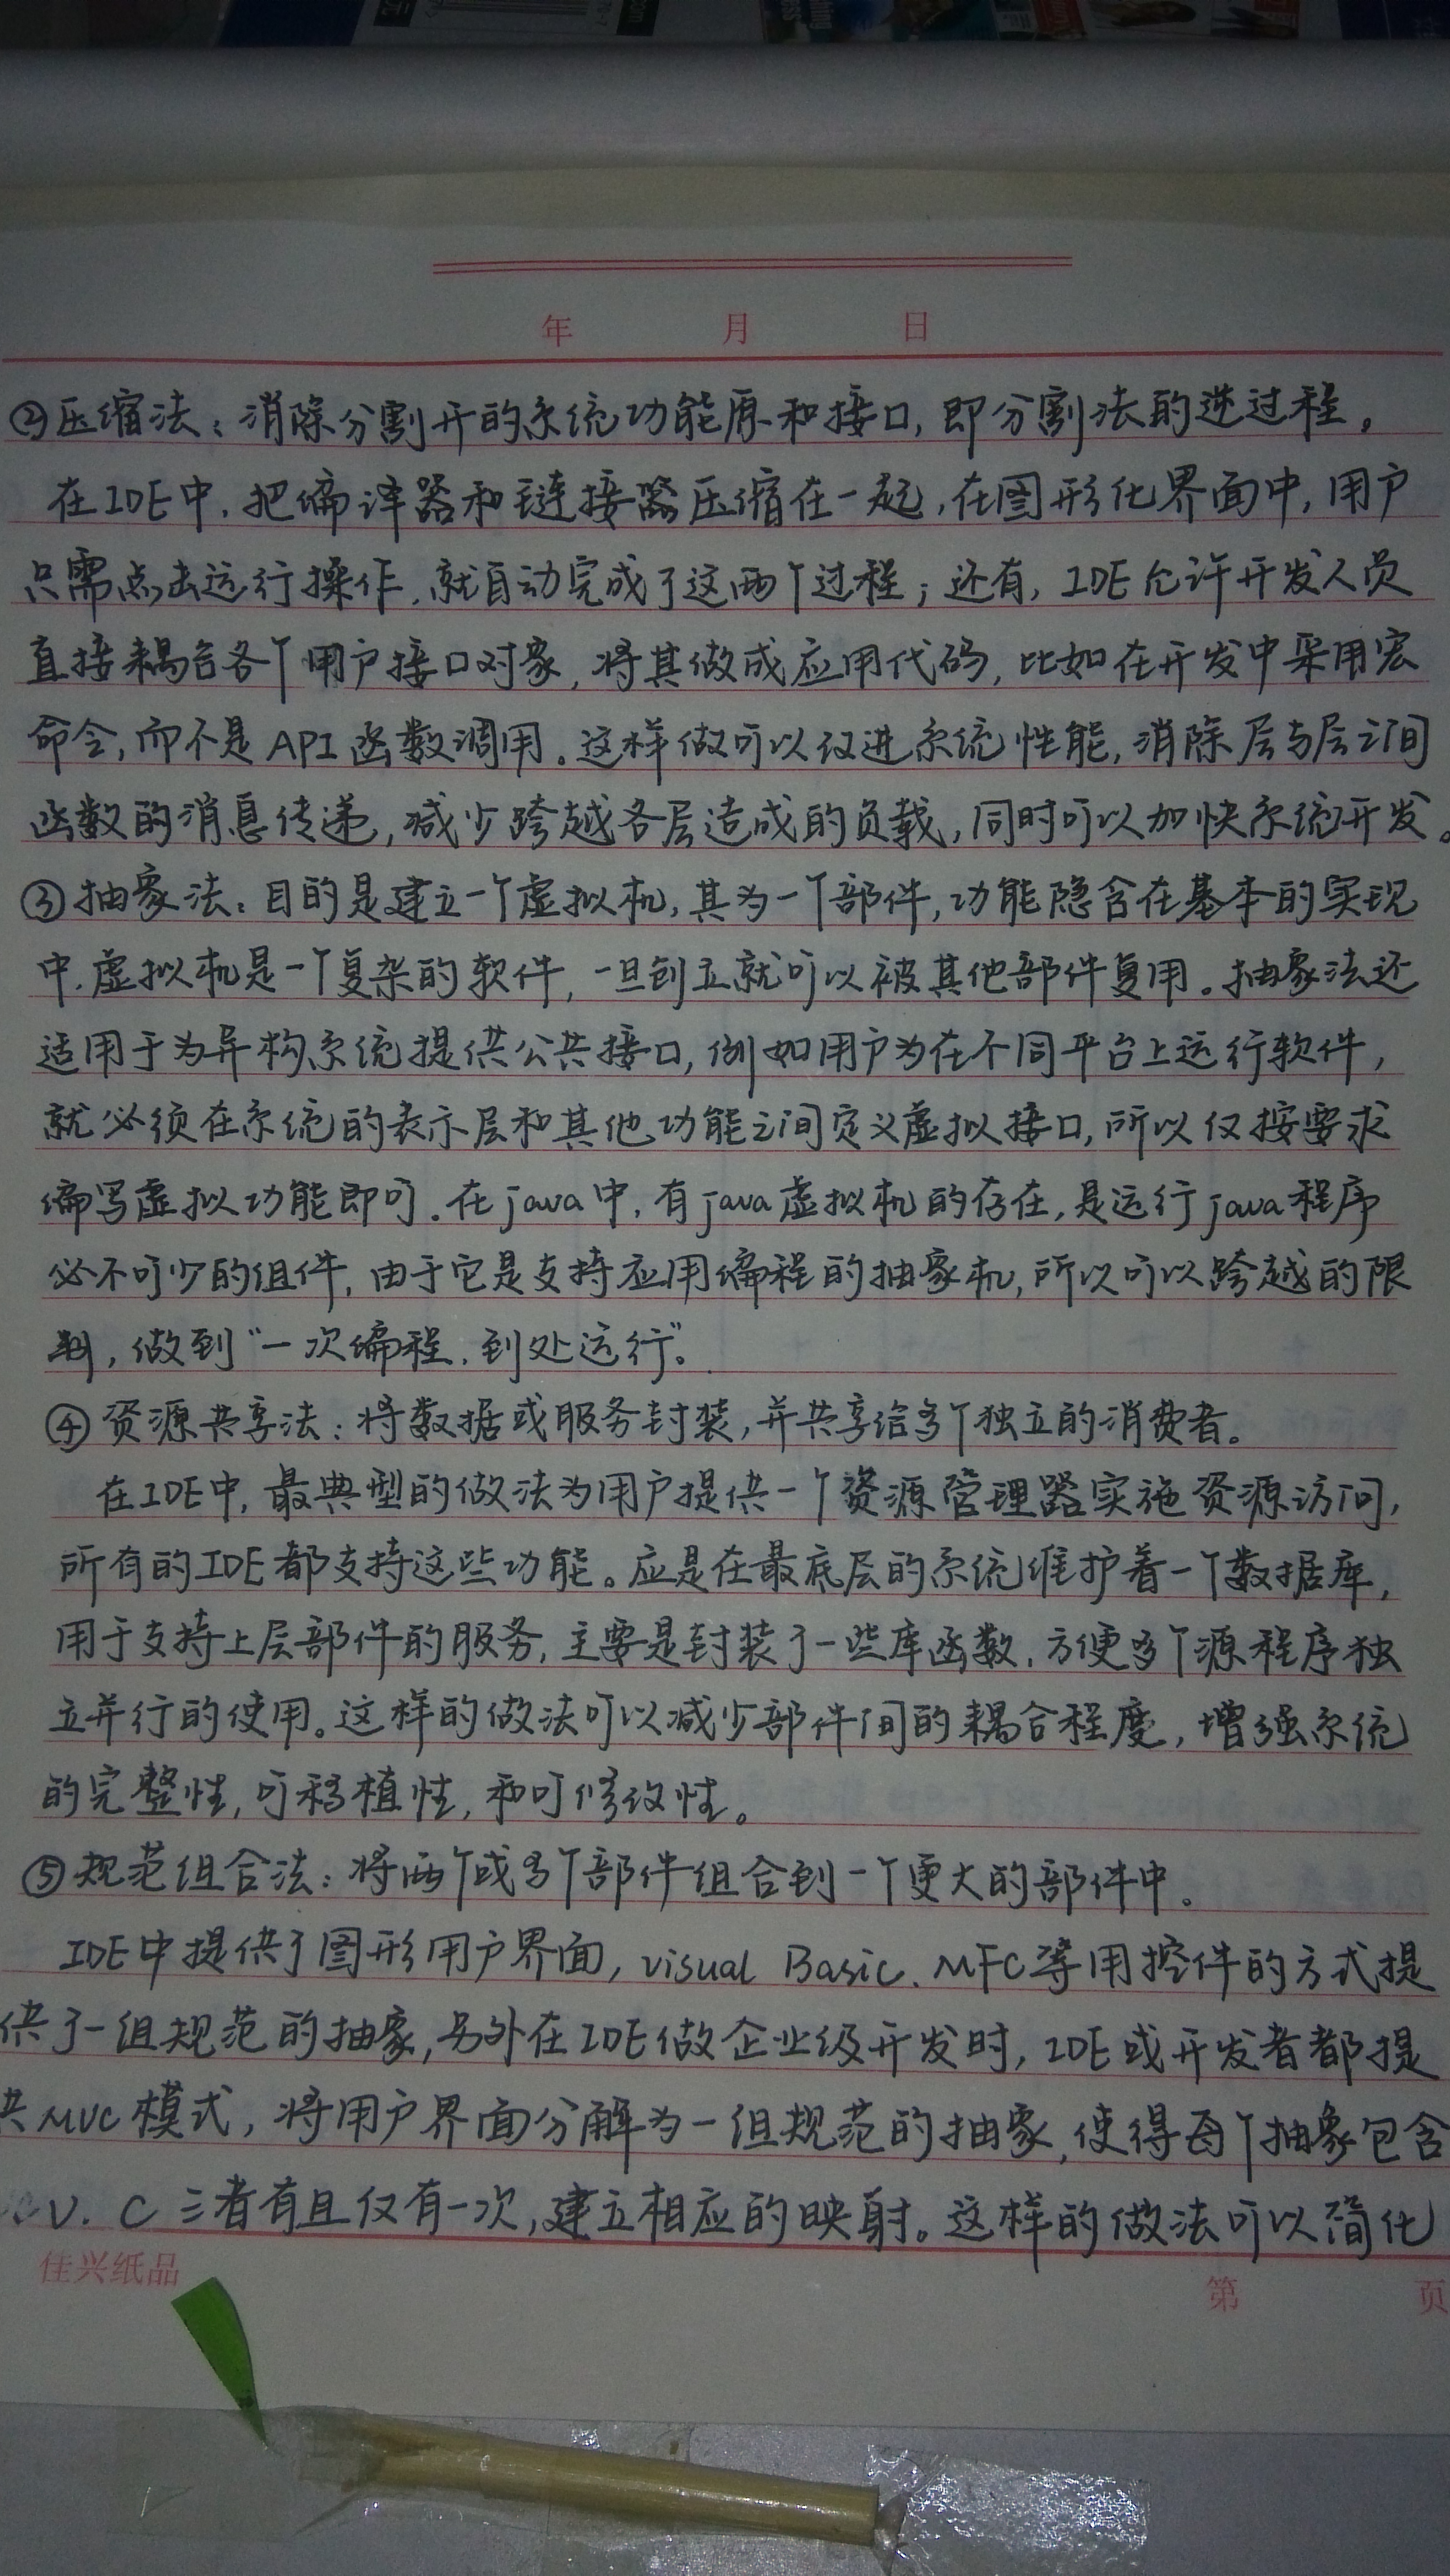 年 月 日
②压缩法：消除分割开的系统功能原和接口，即分割法的逆过程。
在IDE中，把编译器和链接器压缩在一起，在图形化界面中，用户
只需点击运行操作，就自动完成了这两个过程；还有，IDE允许开发人员
直接耦合各个用户接口对象，将其做成应用代码，比如在开发中采用宏
命令，而不是API函数调用。这样做可以改进系统性能，消除层与层之间
函数的消息传递，减少跨越各层造成的负载，同时可以加快系统开发。
③抽象法：目的是建立一个虚拟机，其为一个部件，功能隐含在基本的实现
中，虚拟机是一个复杂的软件，一旦创立就可以被其他部件复用。抽象法还
适用于为异构系统提供公共接口，例如用户为在不同平台上运行软件，
就必须在系统的表示层和其他功能之间定义虚拟接口，所以仅按要求
编写虚拟功能即可。在java中，有java虚拟机的存在，是运行java程序
必不可少的组件，由于它是支持应用编程的抽象机，所以可以跨越的限
制，做到“一次编程，到处运行”。
④资源共享法：将数据或服务封装，并共享给多个独立的消费者。
在IDE中，最典型的做法为用户提供一个资源管理器实施资源访问，
所有的IDE都支持这些功能。应是在最底层的系统维护着一个数据库，
用于支持上层部件的服务，主要是封装了一些库函数，方便多个源程序独
立并行的使用。这样的做法可以减少部件间的耦合程度，增强系统
的完整性，可移植性，和可修改性。
⑤规范组合法：将两个或多个部件组合到一个更大的部件中。
IDE中提供了图形用户界面，visual Basic、MFC等用控件的方式提
供了一组规范的抽象，另外在IDE做企业级开发时，IDE或开发者都提
供MVC模式，将用户界面分解为一组规范的抽象，使得每个抽象包含
V、C三者有且仅有一次，建立相应的映射。这样的做法可以简化
佳兴纸品 第 页